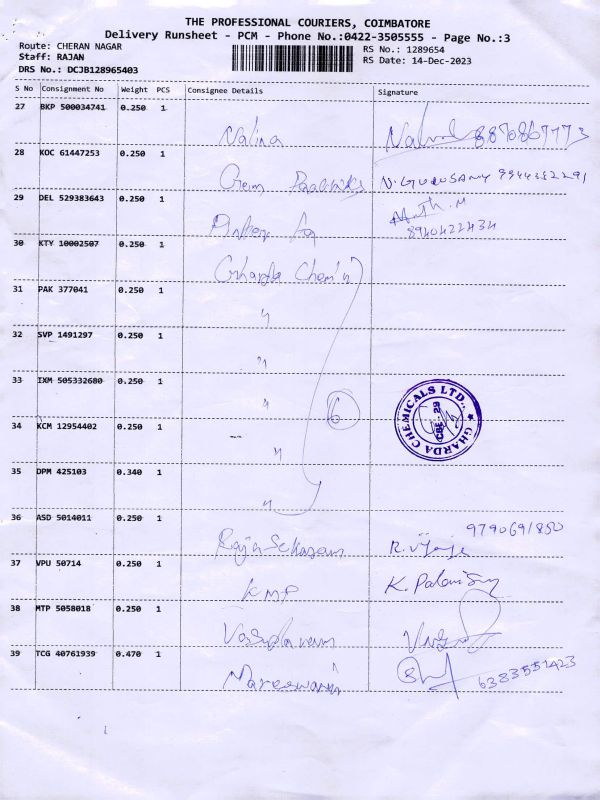 THE PROFESSIONAL COURIERS, COIMBATORE
Delivery Runsheet - PCM - Phone No.:0422-3505555 - Page No.:3
Route: CHERAN NAGAR
RS No.: 1289654
Staff: RAJAN
RS Date: 14-Dec-2023
DRS No.: DCJB128965403
S No Consignment No Weight PCS Consignee Details Signature
27 BKP 500034741 0.250 1
Nalina
28 KOC 61447253 0.250 1
N. GURUSAMY
29 DEL 529383643 0.250 1
8940422434
30 KTY 10002507 0.250 1
Gharda Chem
31 PAK 377041 0.250 1
"
32 SVP 1491297 0.250 1
"
33 IXM 505332680 0.250 1
"
6
GHARDA CHEMICALS LTD.,
CBE-29
34 KCM 12954402 0.250 1
"
35 DPM 425103 0.340 1
"
36 ASD 5014011 0.250 1
Rajasekaran R.
37 VPU 50714 0.250 1
KMP K. Palanisamy
38 MTP 5058018 0.250 1
39 TCG 40761939 0.470 1
6383551423